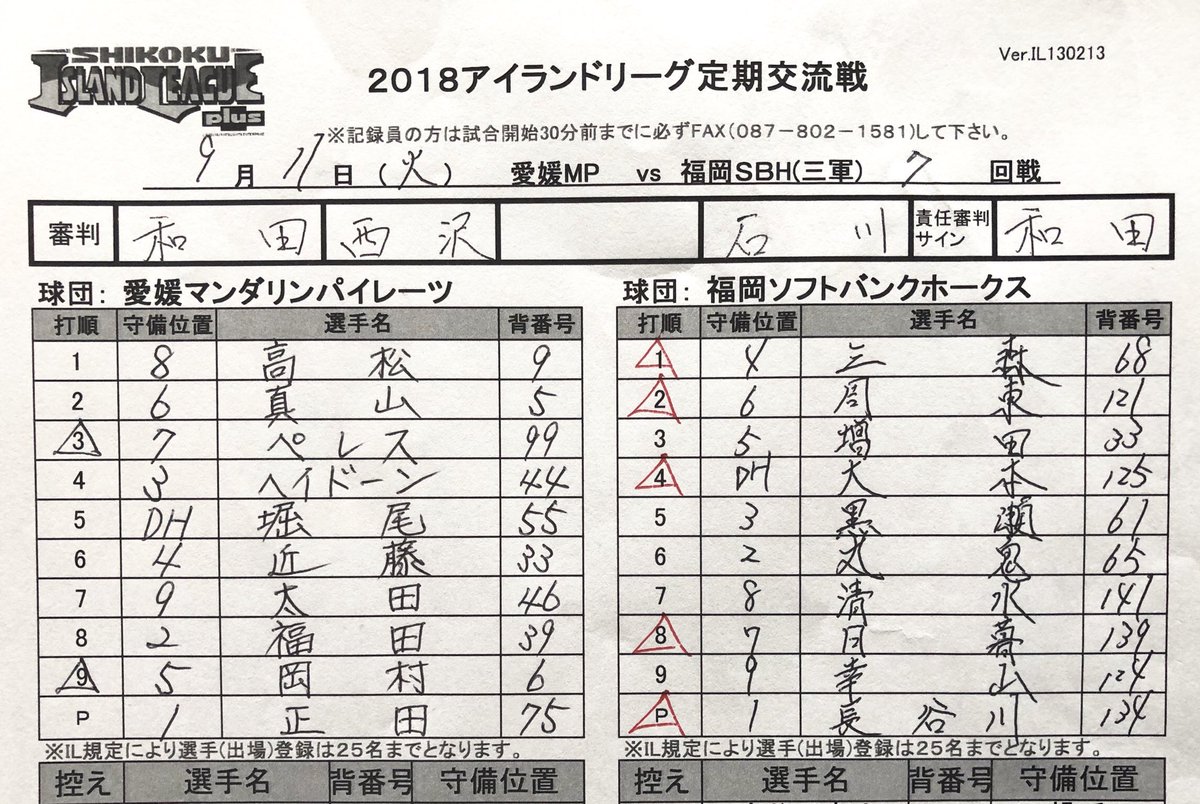 SHIKOKU
ISLAND LEAGUE
plus
Ver.IL130213
2018アイランドリーグ定期交流戦
※記録員の方は試合開始30分前までに必ずFAX(087-802-1581)して下さい。
9月11日(火) 愛媛MP vs 福岡SBH(三軍) 7回戦
審判 和田 西沢 石川 責任審判サイン 和田
球団: 愛媛マンダリンパイレーツ
打順 守備位置 選手名 背番号
1 8 高松 9
2 6 真山 5
3 7 ペレス 99
4 3 ヘイドーン 44
5 DH 堀尾 55
6 4 近藤 33
7 9 太田 46
8 2 福田 39
9 5 岡村 6
P 1 正田 75
※IL規定により選手(出場)登録は25名までとなります。
控え 選手名 背番号 守備位置
球団: 福岡ソフトバンクホークス
打順 守備位置 選手名 背番号
1 4 三森 68
2 6 周東 121
3 5 増田 33
4 DH 大本 125
5 3 黒瀬 61
6 2 九鬼 65
7 8 清水 141
8 7 日暮 139
9 9 幸山 124
P 1 長谷川 134
※IL規定により選手(出場)登録は25名までとなります。
控え 選手名 背番号 守備位置